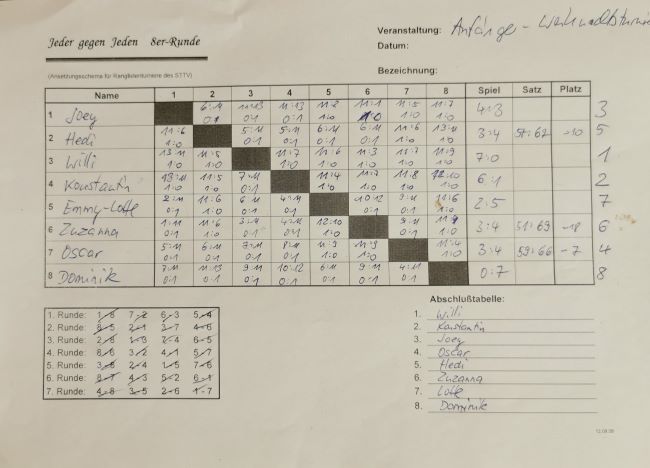 Jeder gegen Jeden 8er-Runde
(Ansetzungsschema für Ranglistenturniere des STTV)
Veranstaltung: Anfänger - Weihnachtsturnier
Datum:
Bezeichnung:
Name 1 2 3 4 5 6 7 8 Spiel Satz Platz
1 Joey 4:3 3
0:1 0:1 0:1 1:0 1:0 1:0 1:0
2 Hedi 11:6 5:11 5:11 6:11 6:11 11:6 13:11 3:4 57:62 -10 5
1:0 0:1 0:1 0:1 0:1 1:0 1:0
3 Willi 7:0 1
1:0 1:0 1:0 1:0 1:0 1:0 1:0
4 Konstantin 11:5 7:11 11:4 11:7 11:8 12:10 6:1 2
1:0 1:0 0:1 1:0 1:0 1:0 1:0
5 Emmy-Lotte 2:11 11:6 6:11 4:11 10:12 9:11 11:6 2:5 7
0:1 1:0 0:1 0:1 0:1 0:1 1:0
6 Zuzanna 1:11 11:6 3:11 4:11 12:10 11:9 3:4 51:69 -18 6
0:1 1:0 0:1 0:1 1:0 0:1 1:0
7 Oscar 5:11 6:11 7:11 8:11 11:9 11:9 11:4 3:4 59:66 -7 4
0:1 0:1 0:1 0:1 1:0 1:0 1:0
8 Dominik 7:11 11:13 9:11 10:12 6:11 9:11 4:11 0:7 8
0:1 0:1 0:1 0:1 0:1 0:1 0:1
1. Runde: 1-8 7-2 6-3 5-4
2. Runde: 8-5 2-1 3-7 4-6
3. Runde: 2-8 1-3 7-4 6-5
4. Runde: 8-6 3-2 4-1 5-7
5. Runde: 3-8 2-4 1-5 7-6
6. Runde: 8-7 4-3 5-2 6-1
7. Runde: 4-8 3-5 2-6 1-7
Abschlußtabelle:
1. Willi
2. Konstantin
3. Joey
4. Oscar
5. Hedi
6. Zuzanna
7. Lotte
8. Dominik